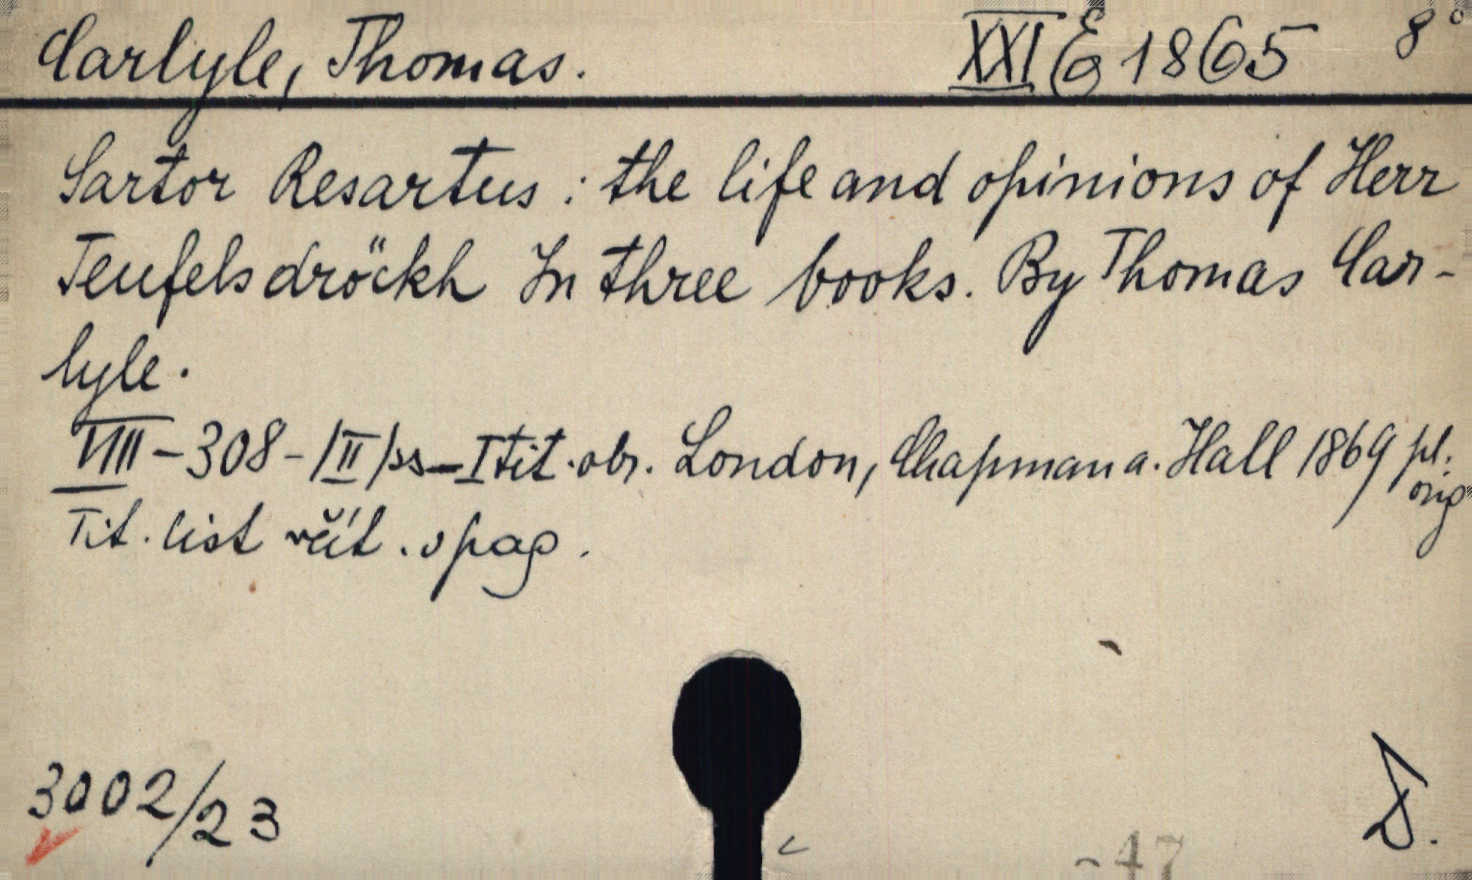 Carlyle, Thomas. XXI E 1865 8°
Sartor Resartus : the life and opinions of Herr
Teufelsdröckh In three books. By Thomas Car-
lyle.
VIII - 308 - /II/ ss - I tit. obr. London, Chapman a. Hall 1869 pl.
orig
Tit. list včít. v pag.
3002/23
-47